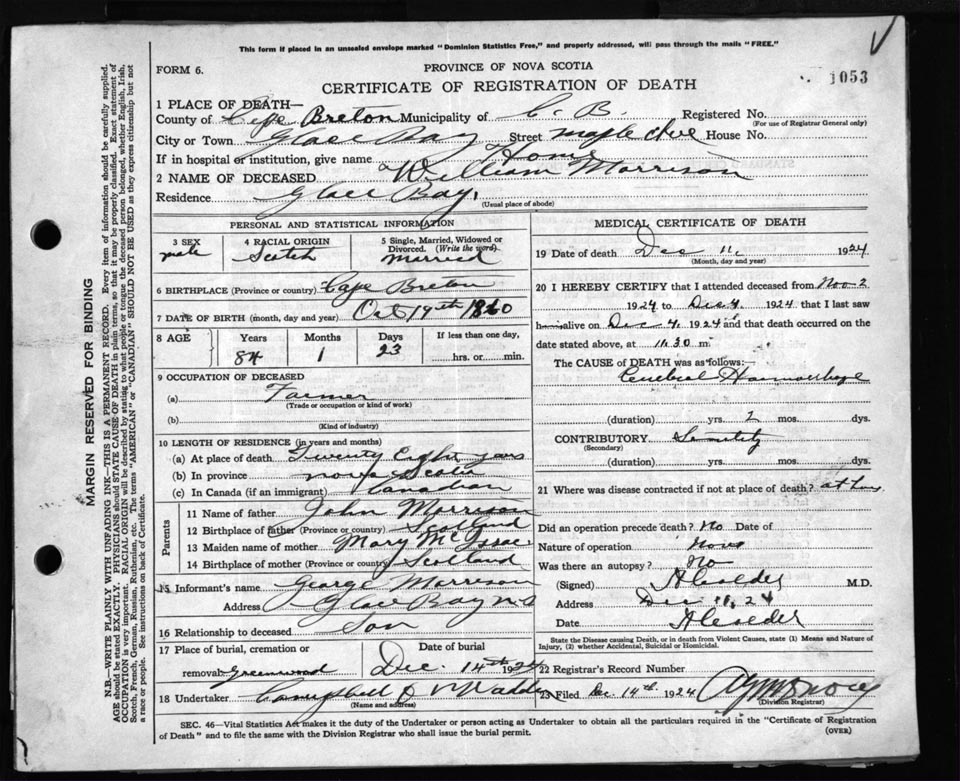 This form if placed in an unsealed envelope marked "Dominion Statistics Free," and properly addressed, will pass through the mails "FREE."
FORM 6.
PROVINCE OF NOVA SCOTIA
1053
CERTIFICATE OF REGISTRATION OF DEATH
1 PLACE OF DEATH—
County of Cape Breton Municipality of C. B. Registered No.
(For use of Registrar General only)
City or Town Glace Bay Street Maple House No.
If in hospital or institution, give name Home
2 NAME OF DECEASED William Morrison
Residence Glace Bay.
(Usual place of abode)
PERSONAL AND STATISTICAL INFORMATION
3 SEX male
4 RACIAL ORIGIN Scotch
5 Single, Married, Widowed or Divorced. (Write the word) Married
6 BIRTHPLACE (Province or country) Cape Breton
7 DATE OF BIRTH (month, day and year) Oct 19th
8 AGE Years 84 Months 1 Days 23 If less than one day, hrs. or min.
9 OCCUPATION OF DECEASED
(a) Farmer
(Trade or occupation or kind of work)
(b)
(Kind of industry)
10 LENGTH OF RESIDENCE (in years and months)
(a) At place of death Twenty Eight years
(b) In province Nova Scotia
(c) In Canada (if an immigrant) Canadian
Parents
11 Name of father John Morrison
12 Birthplace of father (Province or country) Scotland
13 Maiden name of mother Mary
14 Birthplace of mother (Province or country) Scotland
15 Informant's name George Morrison
Address Glace Bay N.S
16 Relationship to deceased Son
17 Place of burial, cremation or removal Greenwood
Date of burial Dec. 14th 1924
18 Undertaker Campbell &
(Name and address)
MEDICAL CERTIFICATE OF DEATH
19 Date of death Dec 11, 1924
(Month, day and year)
20 I HEREBY CERTIFY that I attended deceased from Nov 2
1924 to Dec 4, 1924 that I last saw
him alive on Dec 4, 1924 and that death occurred on the
date stated above, at 11.30 m
The CAUSE OF DEATH was as follows:—
Cerebral Haemorrhage
(duration) yrs. mos. dys.
CONTRIBUTORY Senility
(Secondary)
(duration) yrs. mos. dys.
21 Where was disease contracted if not at place of death? at home
Did an operation precede death? No Date of
Nature of operation None
Was there an autopsy? No
(Signed) M.D.
Address Dec 11, 24
Date
State the Disease causing Death, or in death from Violent Causes, state (1) Means and Nature of
Injury, (2) whether Accidental, Suicidal or Homicidal.
22 Registrar's Record Number
23 Filed Dec 14th 1924
(Division Registrar)
SEC. 46—Vital Statistics Act makes it the duty of the Undertaker or person acting as Undertaker to obtain all the particulars required in the "Certificate of Registration
of Death" and to file the same with the Division Registrar who shall issue the burial permit.
(OVER)
MARGIN RESERVED FOR BINDING
N.B.—WRITE PLAINLY WITH UNFADING INK—THIS IS A PERMANENT RECORD. Every item of information should be carefully supplied.
AGE should be stated EXACTLY. PHYSICIANS should STATE CAUSE OF DEATH in plain terms, so that it may be properly classified. Exact statement of
OCCUPATION is very important. RACIAL ORIGIN will be described by stating to what people or tongue the deceased person belonged, whether English, Irish,
Scotch, French, German, Russian, Ruthenian, etc. The terms "AMERICAN" or "CANADIAN" SHOULD NOT BE USED as they express citizenship but not
a race or people. See instructions on back of Certificate.